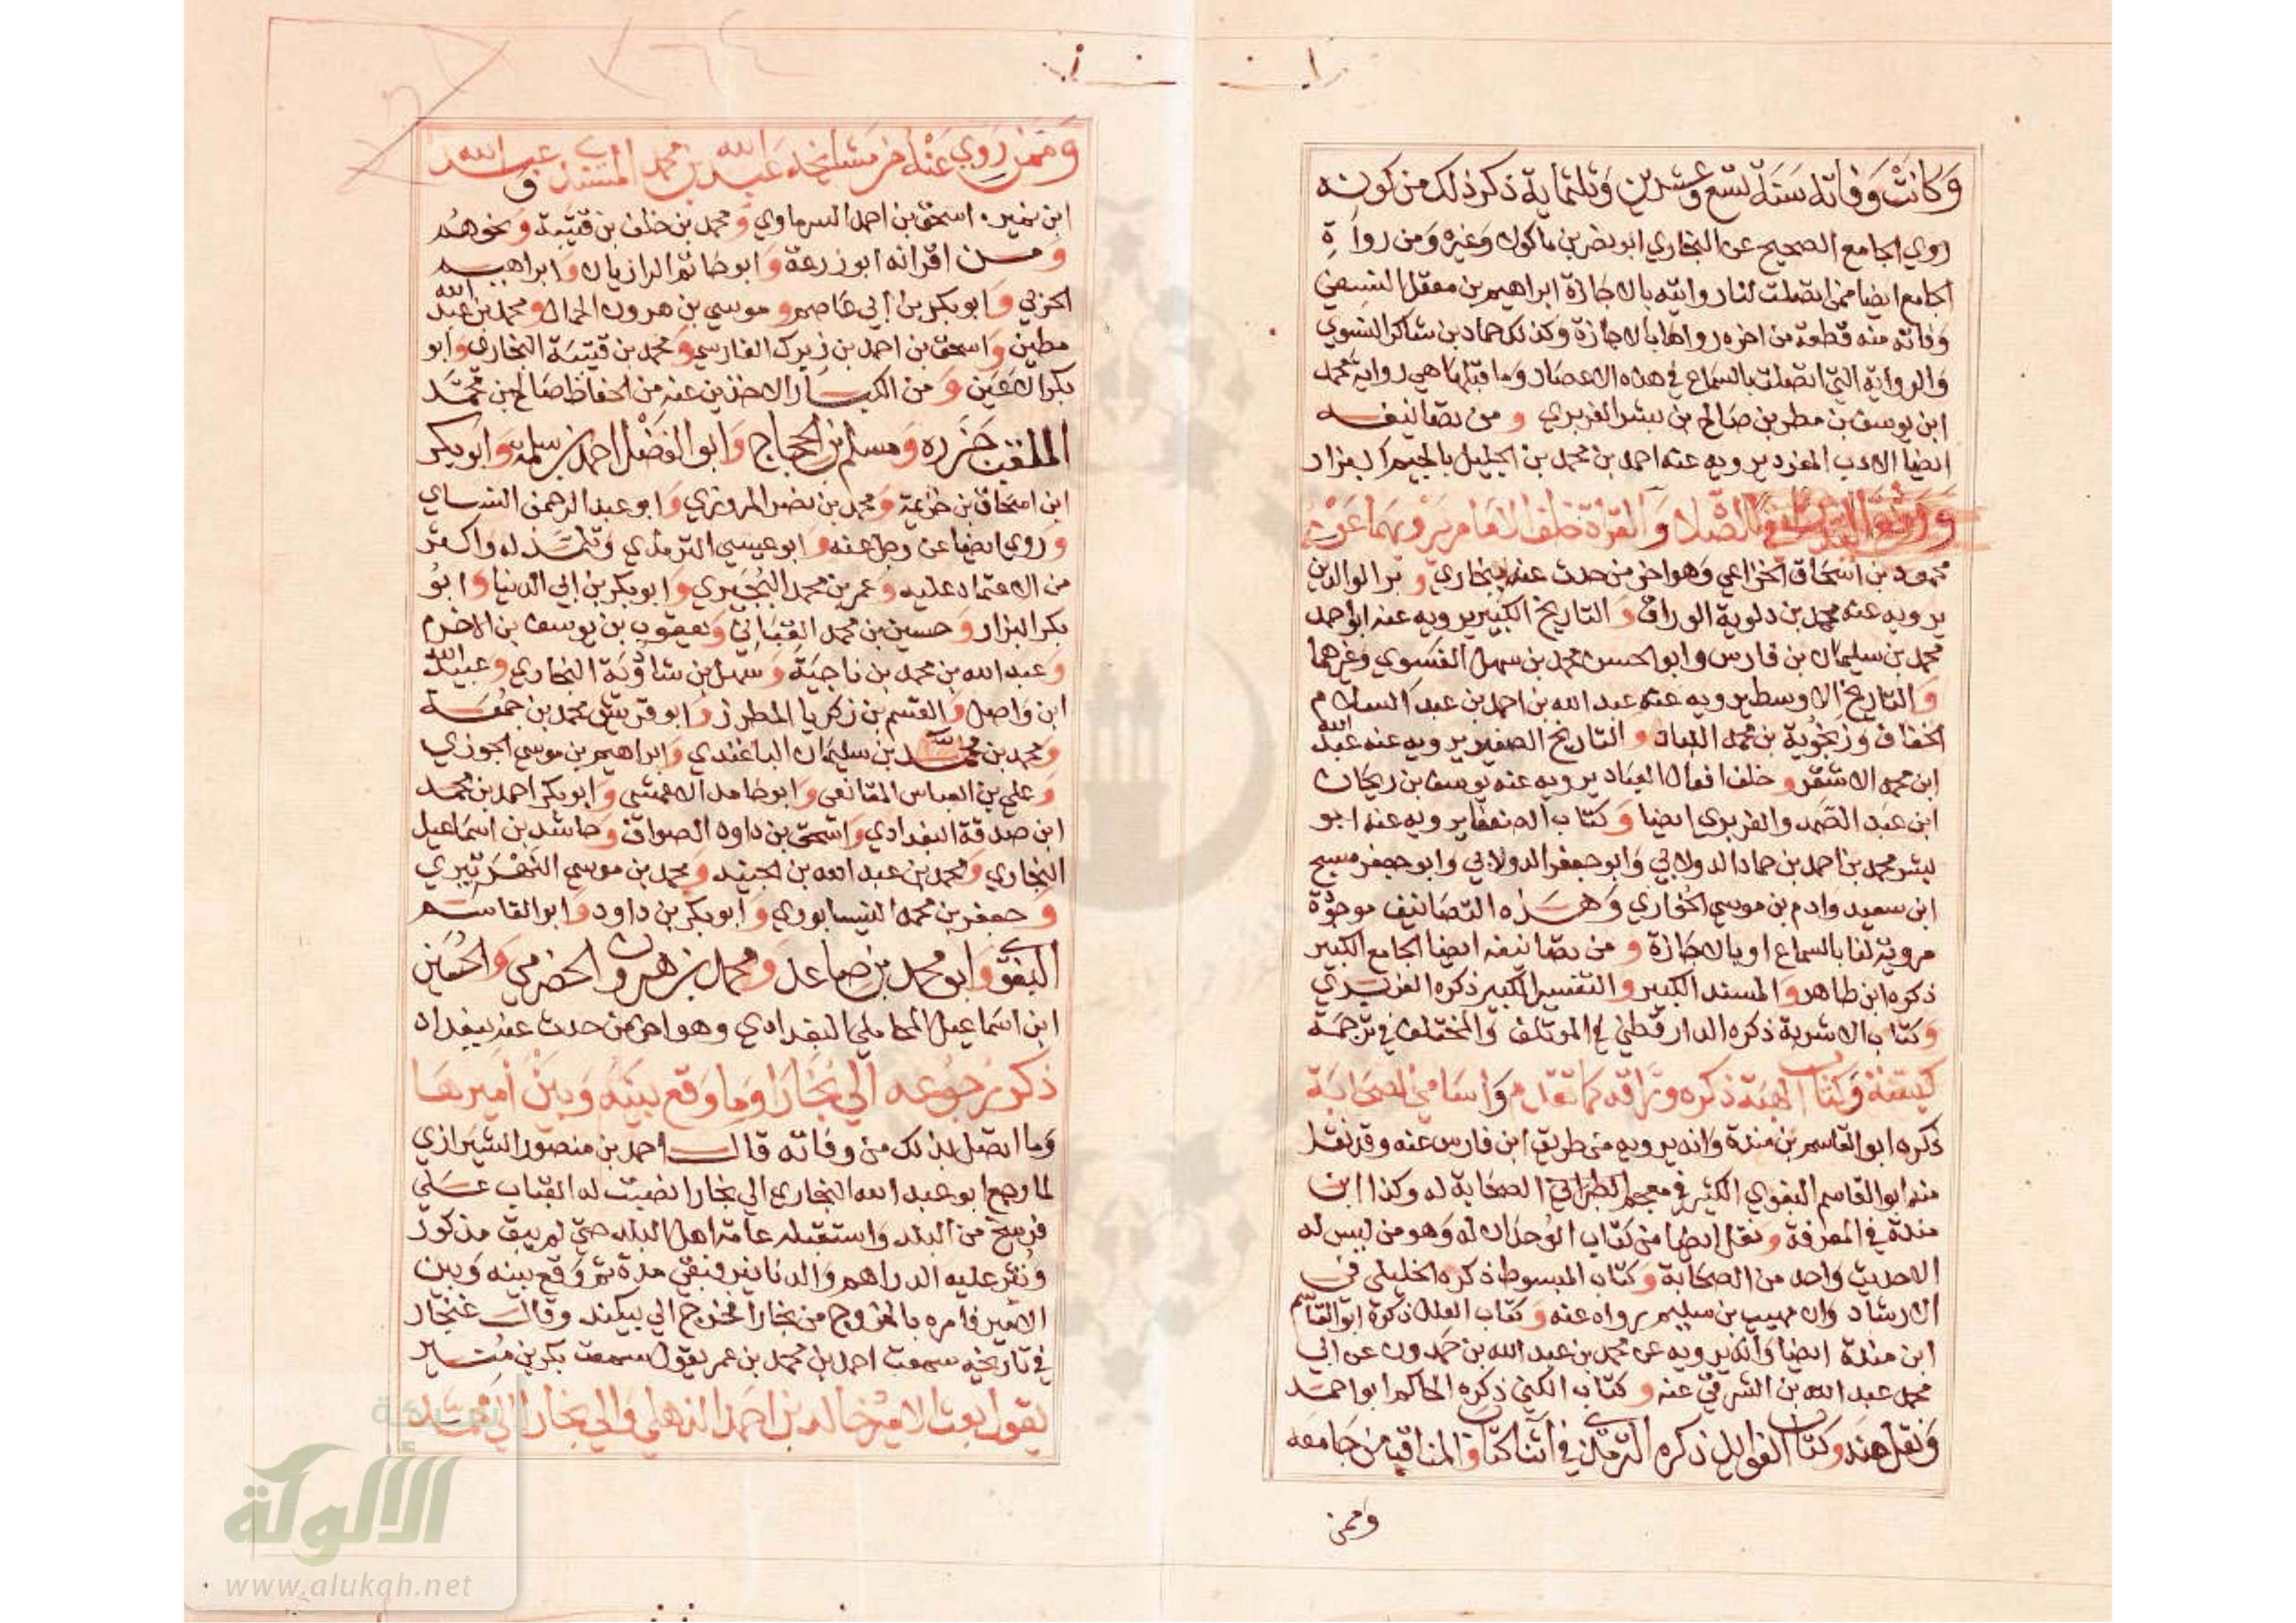 وَكانَتْ وَفاته سَنَة تسع وعشرين وَثلثماية ذكر ذلك من كونه
روي الجامع الصحيح عن البخاري ابو نصر بن ماكولا وَغيره وَمن رواة
الجامع ايضا ممن اتصلت لنا روايته بالاجازة ابراهيم بن معقل النسفي
وَفاته منه قطعة من اخره رواها بالاجازة وَكذلك حماد بن شاكر النسوي
وَالرواية التي اتصلت بالسماع في هذه الاعصار وَما قبلها هي رواية محمد
ابن يوسف بن مطر بن صالح بن بشر الفربري و من تصانيفه
ايضا الادب المفرد يرويه عنه احمد بن محمد بن الجليل بالجيم البزار
وَرفع اليدين في الصّلاة وَالقراة خلف الامام يرويهما عنه
محمود بن اسحاق الخزاعي وَهو اخر من حدث عنه ببخاري و بر الوالدين
يرويه عنه محمد بن دلوية الوراق وَ التاريخ الكبير يرويه عنه ابو احمد
محمد بن سليمان بن فارس وابو الحسن محمد بن سهل الفسوي وَغيرهما
وَ التاريخ الاوسط يرويه عنه عبد الله بن احمد بن عبد السلام
الخفاف وَزنجوية بن محمد اللباد و التاريخ الصغير يرويه عنه عبد الله
ابن محمد الاشقر و خلف افعال العباد يرويه عنه يوسف بن ريحان
ابن عبد الصَمد والفربري ايضا وَ كتاب الضعفا يرويه عنه ابو
بشر محمد بن احمد بن حماد الدولابي وَابو جعفر الدولابي وَابو جعفر مسبح
ابن سعيد وادم بن موسي الخواري وَهـذه التصَانيف موجودة
مروية لنا بالسماع او بالاجازة و من تصانيفه ايضا الجامع الكبير
ذكره ابن طاهر وَ المسند الكبير و التفسير الكبير ذكره الفربري
وَ كتاب الاشربة ذكره الدارقطني في الموتلف وَالمختلف في ترجمة
كيسنة وَكتاب الهبَة ذكره ورّاقه كما تقدم وَاسَامي الصحَابَة
ذكره ابو القاسم بن مندة وَانه يرويه من طريق ابن فارس عنه وقد نقل
منه ابو القاسم البغوي الكثير في معجم الصحابة له وكذا ابن
مندة في المعرفة و نقل ايضا من كتاب الوُحدان له وَهو من ليس له
الا حديث واحد من الصحَابة وَ كتاب المبسوط ذكره الخليلي في
الارشاد وَان مهيب بن سليم رواه عنه وَ كتاب العلل ذكره ابو القاسم
ابن مندة ايضا وَانه يرويه عن محمد بن عبد الله بن حَمدون عن ابي
محمد عبد الله بن الشرقي عنه و كتاب الكني ذكره الحاكم ابو احمد
وَنقل منه وَ كتاب الفوايد ذكره الترمذي في اثنا كتاب المناقب من جَامعه
وممن
وَممن رَوي عَنْه من مشايخه عَبد الله بن محمد المسندي عبد الله
ابن نمير، اسحق بن احمد السرماوي وَ محمد بن خلف بن قتيبة وَ نحوهم
وَ مـن اقرانه ابو زرعة وَ ابو حَاتم الرازيان وَ ابراهيم
الحربي وَ ابو بكر بن ابي عاصم و موسي بن هرون الحمال و محمد بن عبد الله
مطين وَ اسحق بن احمد بن زيرك الفارسي وَ محمد بن قتيبة البخاري وَ ابو
بكر الاعين وَ من الكبـار الاخذين عنه من الحفاظ صَالح بن محمّد
الملقب جَزَره وَ مسلم بن الحجاج وَ ابو الفضل احمد بن سلمة وَ ابو بكر
ابن اسحاق بن خزيمة وَ محمد بن نصر المروزي وَ ابو عبد الرحمن النساي
وَ روي ايضا عن رجل عنه وَ ابو عيسي الترمذي وَتلمذ له واكثر
من الاعتماد عليه وَ عمر بن محمد البُجَيري وَ ابو بكر بن ابي الدنيا وَ ابوُ
بكر البزار وَ حسين بن محمد القَبَاني وَ يعقوب بن يوسف بن الاخرم
وَ عبد الله بن محمد بن ناجيَة وَ سهل بن شاذويَة البخاري وَ عبيد الله
ابن وَاصل وَ القسم بن زكريا المطرز وَ ابو قريش محمد بن جمُعَـة
وَ محمد بن محمّد بن سليمان الباغندي وَ ابراهيم بن موسي الجوزي
وَ علي بن العباس المقانعي وَ ابو حَامد الاعمشي وَ ابو بكر احمد بن محمد
ابن صدقة البغدادي وَ اسحق بن داود الصواف وَ حاشد بن اسمَاعيل
البخاري وَ محمد بن عبد الله بن الجنيد وَ محمد بن موسي النَهْرَتيري
وَ جعفر بن محمد النيسابوري وَ ابو بكر بن داود وَ ابو القاسم
البغوي وَ ابو محمد بن صَاعد وَ محمد بن هرون الحضرمي وَ الحُسَين
ابن اسماعيل المحاملي البغدادي وهو اخر من حدث عنه ببغداد
ذكر رُجوُعه الي بُخَارَا وَما وَقع بينَه وَبين أميرها
وَما اتصل بذلك من وفَاته قالـ احمد بن منصور الشيرازي
لما رجع ابو عبد الله البخاري الي بخارا نصبت له القباب عـلي
فرسخ من البلد وَاستقبله عامة اهل البلد حتي لم يبق مذكور
وَنُثر عليه الدراهم وَالدنانير فبقي مدة ثم وَقع بينه وَبين
الامير فامره بالخروج من بخارا فخرج الي بيكند وقالـ غنجار
في تاريخه سمعت احمد بن محمد بن عمر يقول سمعت بكر بن مُنـير
يقول بعث الاميرُ خالد بن احمد الذهلي والي بخارا الي محمّد
شبكة
الألوكة
www.alukah.net